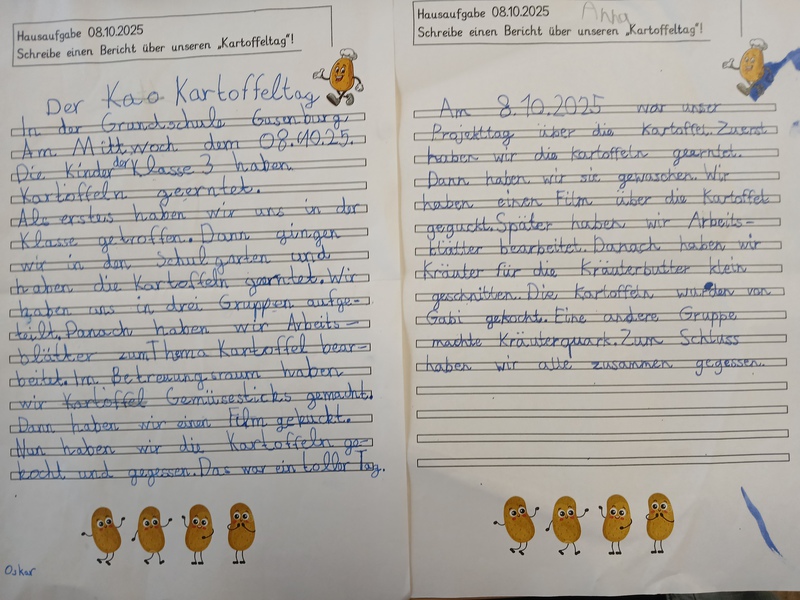 Hausaufgabe 08.10.2025
Schreibe einen Bericht über unseren „Kartoffeltag"!
Der Kao Kartoffeltag
In der Grundschule Gusenburg.
Am Mittwoch dem 08.10.25.
Die Kinder der Klasse 3 haben
Kartoffeln geerntet.
Als erstes haben wir uns in der
Klasse getroffen. Dann gingen
wir in den Schulgarten und
haben die Kartoffeln geerntet. Wir
haben uns in drei Gruppen aufge-
teilt. Danach haben wir Arbeits-
blätter zum Thema Kartoffel bear-
beitet. Im Betreuungsraum haben
wir Kartoffel Gemüsesticks gemacht.
Dann haben wir einen Film gekuckt.
Nun haben wir die Kartoffeln ge-
kocht und gegessen. Das war ein toller Tag.
Oskar
Hausaufgabe 08.10.2025 Anna
Schreibe einen Bericht über unseren „Kartoffeltag"!
Am 8.10.2025 war unser
Projekttag über die Kartoffel. Zuerst
haben wir die Kartoffeln geerntet.
Dann haben wir sie gewaschen. Wir
haben einen Film über die Kartoffel
geguckt. Später haben wir Arbeits-
blätter bearbeitet. Danach haben wir
Kräuter für die Kräuterbutter klein
geschnitten. Die Kartoffeln wurden von
Gabi gekocht. Eine andere Gruppe
machte Kräuterquark. Zum Schluss
haben wir alle zusammen gegessen.